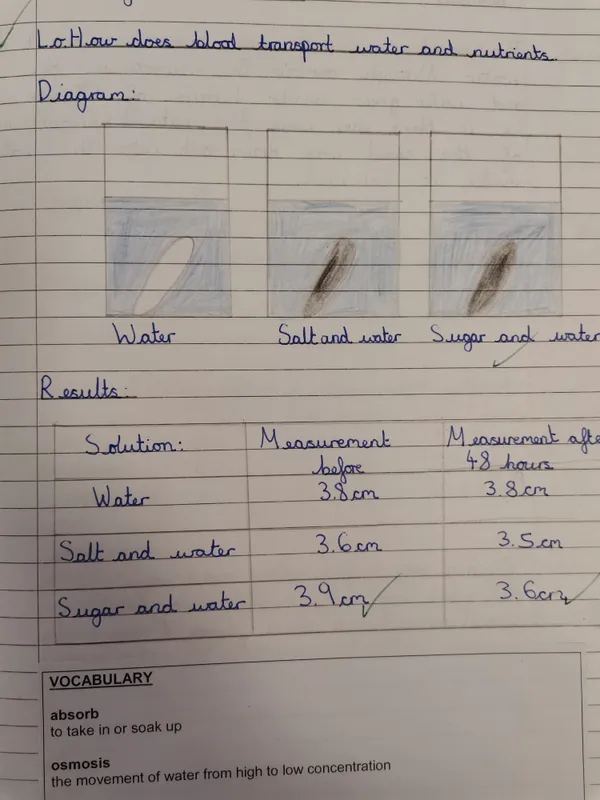 L.o.How does blood transport water and nutrients.
Diagram:
Water
Salt and water
Sugar and water
Results:
Solution:
Measurement before
Measurement afte
48 hours
Water
3.8cm
3.8cm
Salt and water
3.6cm
3.5cm
Sugar and water
3.9cm
3.6cm
VOCABULARY
absorb
to take in or soak up
osmosis
the movement of water from high to low concentration